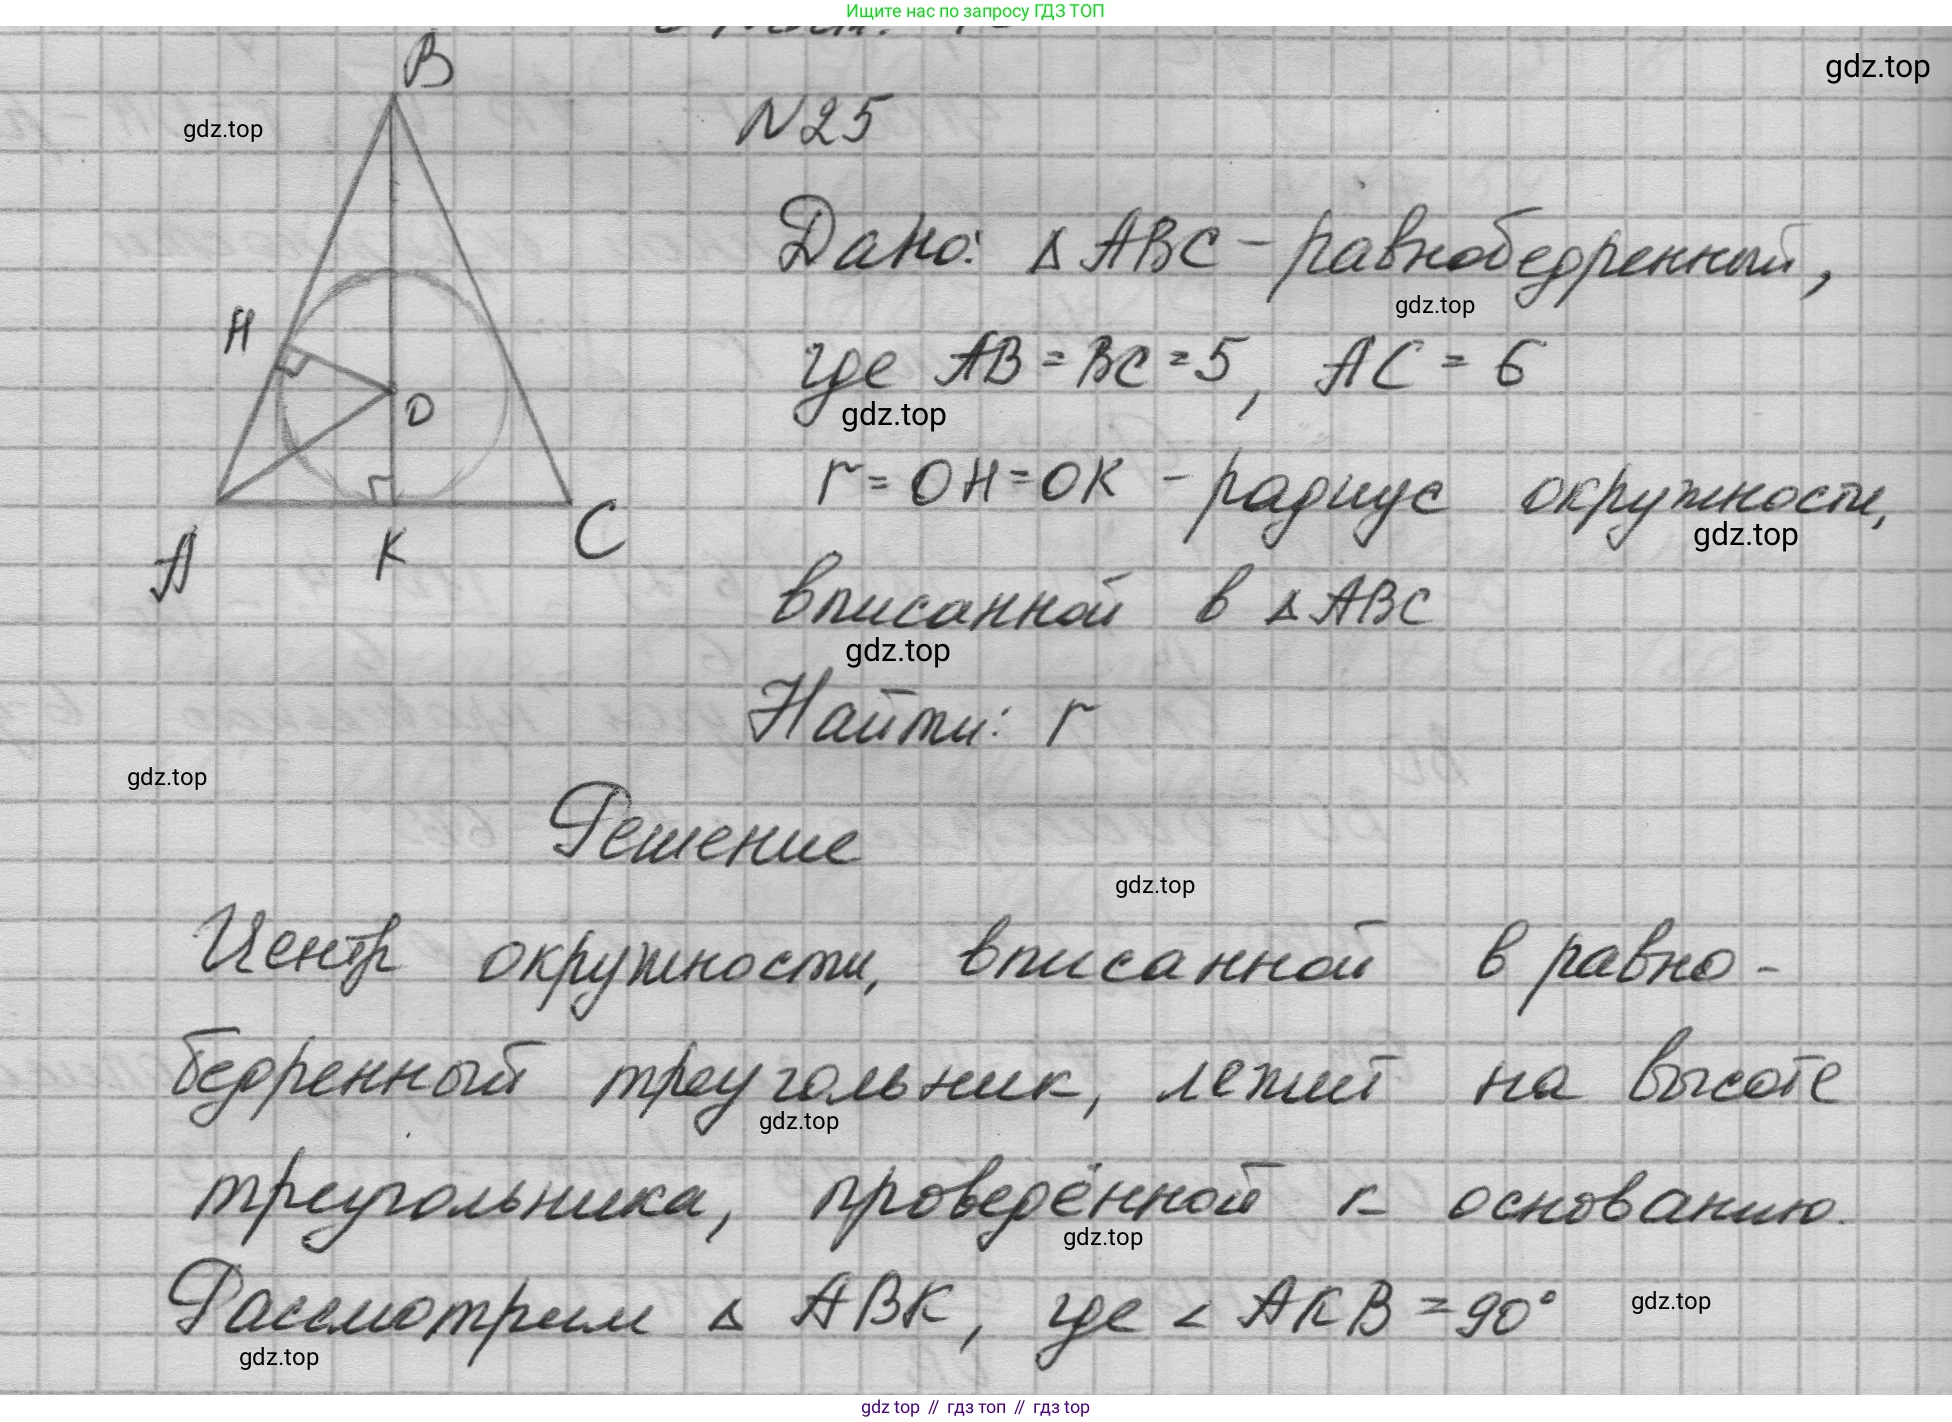 Ищите нас по запросу ГДЗ ТОП
gdz.top
B
gdz.top
N25
Дано: Δ ABC - равнобедренный,
gdz.top
H
где AB = BC = 5, AC = 6
gdz.top
O
r = OH = OK - радиус окружности,
gdz.top
A
K
C
вписанной в Δ ABC
gdz.top
Найти: r
gdz.top
Решение
gdz.top
Центр окружности, вписанной в равно-
бедренный треугольник, лежит на высоте
gdz.top
треугольника, проведённой к основанию.
gdz.top
Рассмотрим Δ ABK, где < AKB = 90°
gdz.top
gdz.top
gdz top // гдз топ // гдз top